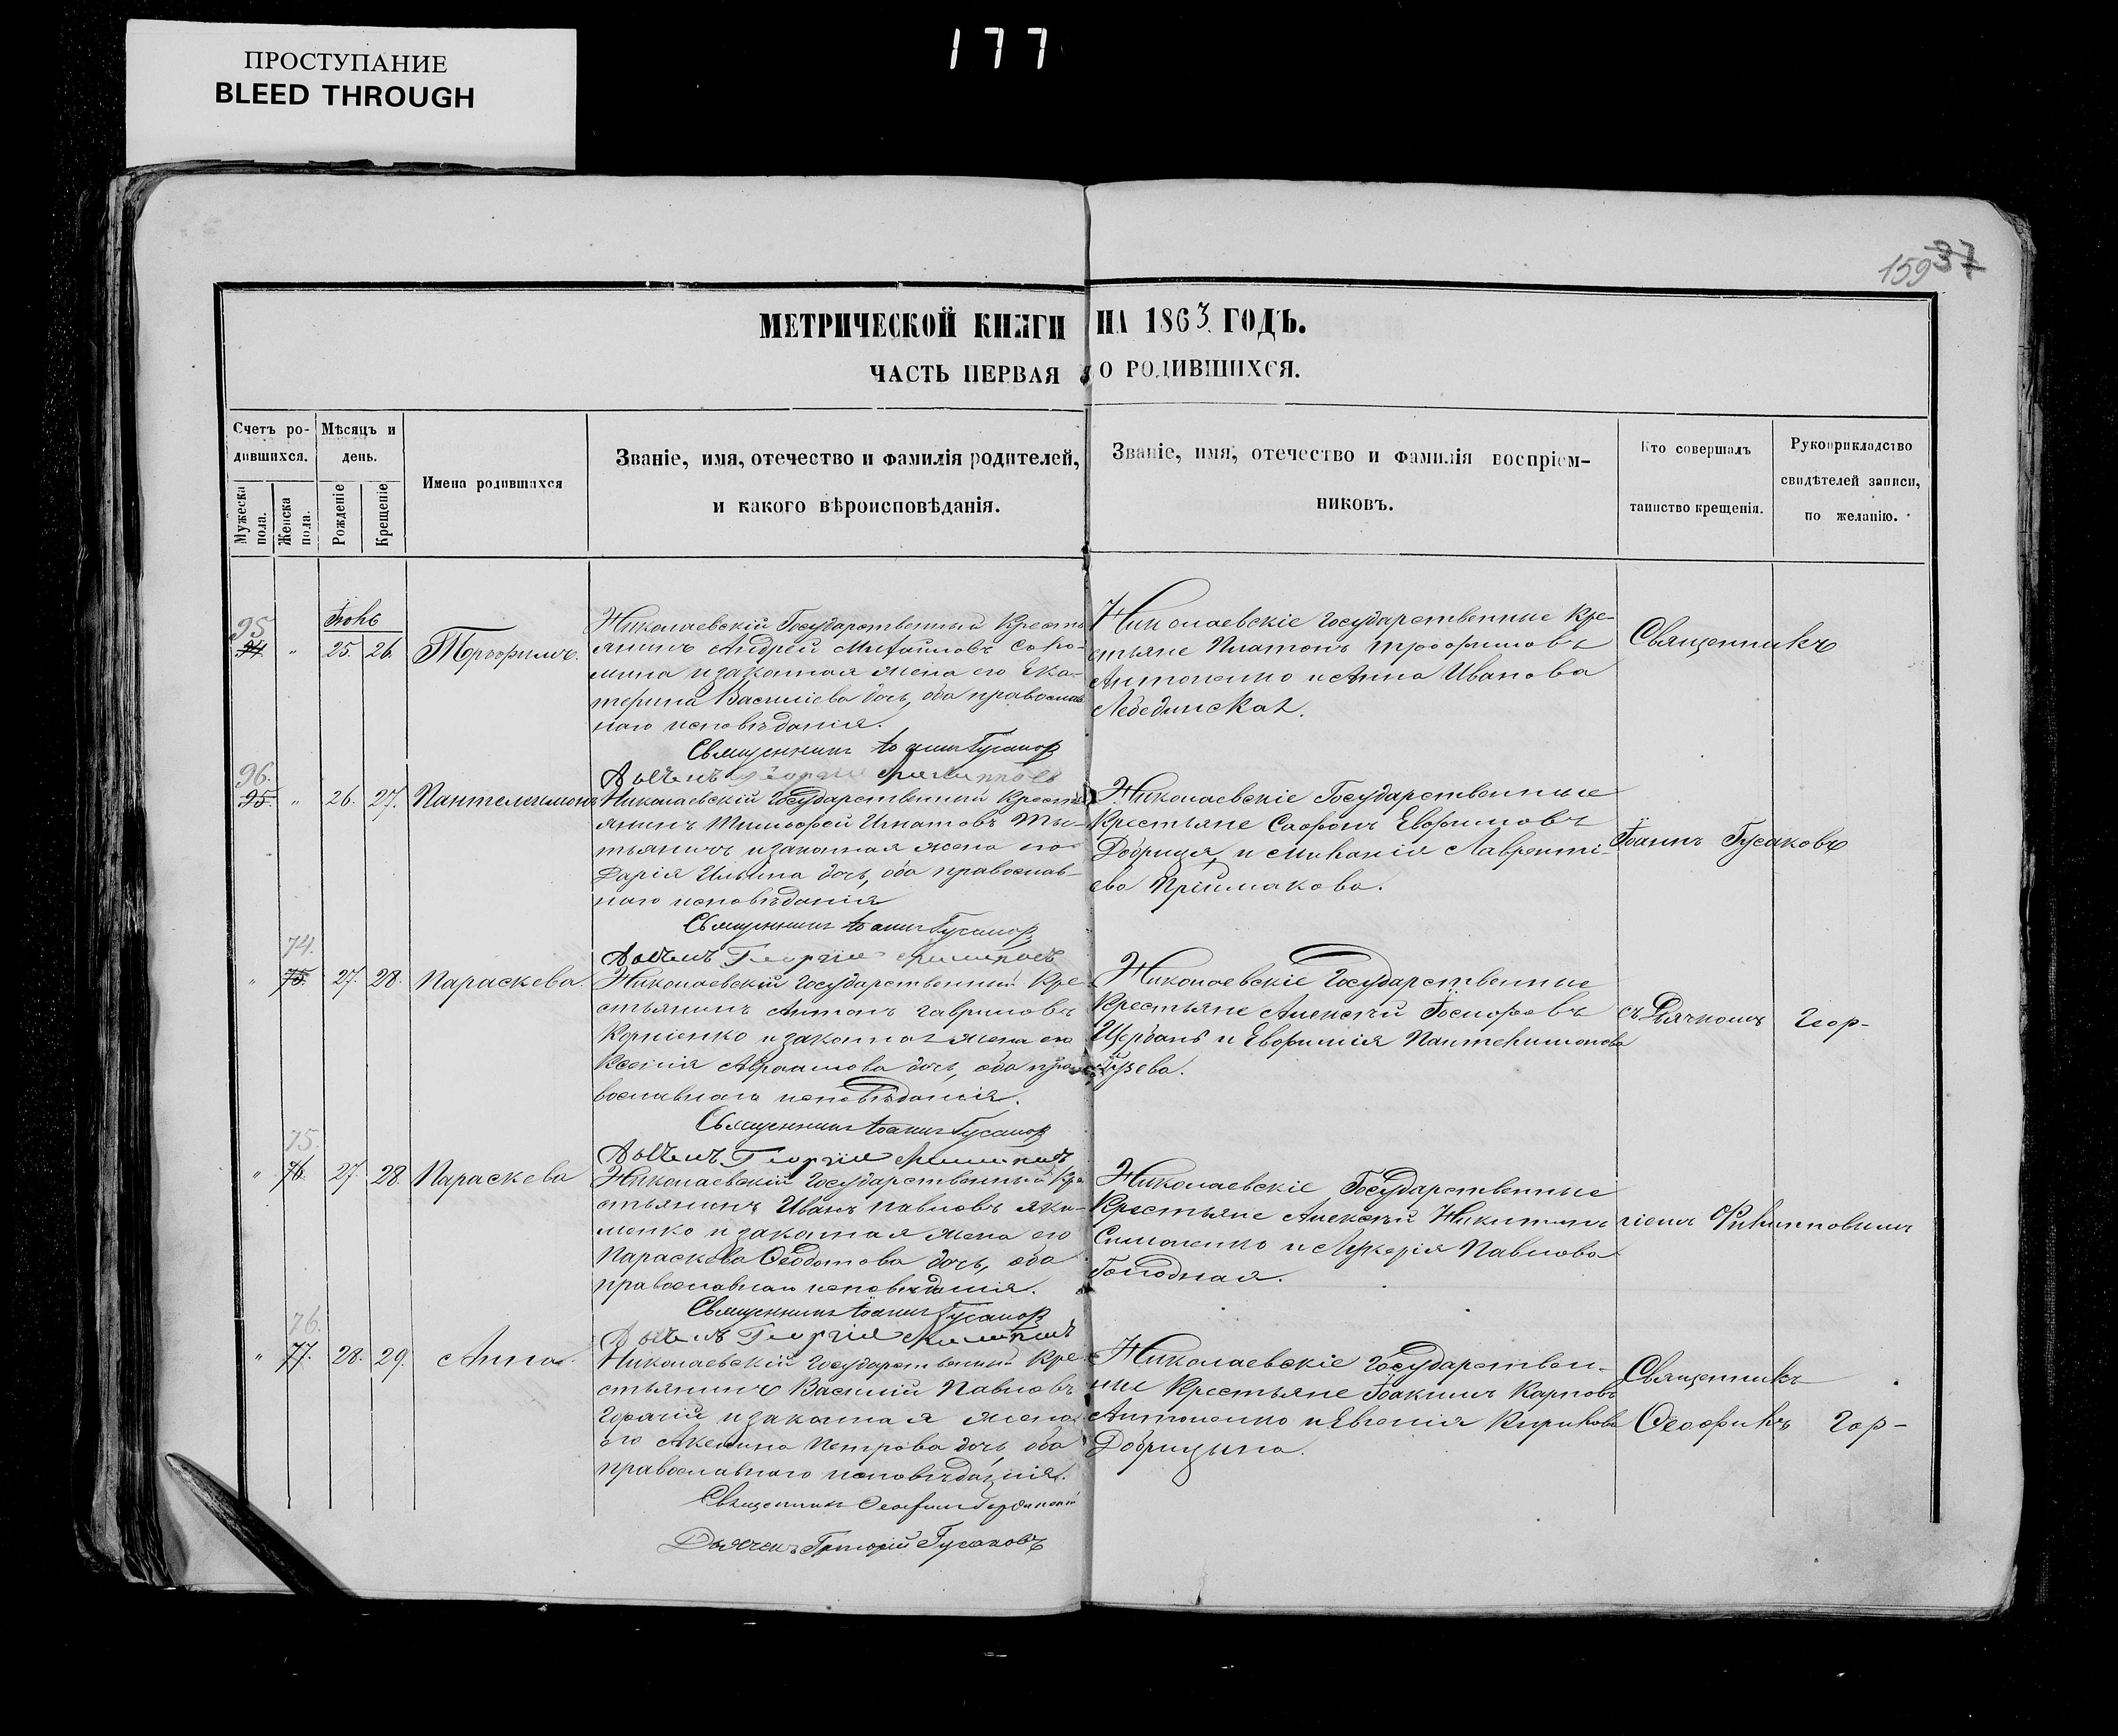 ПРОСТУПАНИЕ
BLEED THROUGH
177
159 37
МЕТРИЧЕСКОЙ КНИГИ НА 1863 ГОДЪ.
ЧАСТЬ ПЕРВАЯ О РОДИВШИХСЯ.
Счетъ ро-
дившихся.
Мужеска
пола.
Женска
пола.
Мѣсяцъ и
день.
Рожденіе
Крещеніе
Имена родившихся
Званіе, имя, отечество и фамилія родителей,
и какого вѣроисповѣданія.
Званіе, имя, отечество и фамилія воспріем-
никовъ.
Кто совершалъ
таинство крещенія.
Рукоприкладство
свидѣтелей записи,
по желанію.
95
94 " Іюнь
25. 26.
Николаевскій Государственный Кресть
янинъ Андрей Михайловъ
и законная жена его Ека-
терина Василіева дочь, оба православ
наго исповѣданія.
Священникъ Іоаннъ Гусаков
Дьячекъ Георгій Филипповъ
Николаевскіе Государственные Кре-
стьяне Платонъ Трофимовъ
Антоненко и Анна Иванова
Лебединская.
Священникъ
96.
95. " 26. 27. Пантелеимонъ
Николаевскій Государственный Кресть
янинъ Тимофей Игнатовъ
и законная жена его
Дарія Ильина дочь, оба православ-
наго исповѣданія
Священникъ Іоаннъ Гусаков
Дьячекъ Георгій Филипповъ
Николаевскіе Государственные
Крестьяне Софронъ Евфимовъ
Добрица, и Меланія Лавренті-
ева Пріймакова.
Іоаннъ Гусаковъ
74.
" 75. 27. 28. Параскева.
Николаевскій Государственный Кре
стьянинъ Антонъ Гавриловъ
Корніенко и законная жена его
Ксенія Авраамова дочь, оба пра
вославнаго исповѣданія.
Священникъ Іоаннъ Гусаков
Дьячекъ Георгій Филипповъ
Николаевскіе Государственные
Крестьяне Алексѣй Іосифовъ
Щербань и Евфимія Пантелимонова
съ Дьячкомъ Геор-
75.
" 76 27. 28. Параскева
Николаевскій Государственный Кре
стьянинъ Иванъ Павловъ Яки-
менко и законная жена его
Параскева Ѳеодотова дочь, оба
православнаго исповѣданія.
Священникъ Іоаннъ Гусаков
Дьячекъ Георгій Филипповъ
Николаевскіе Государственные
Крестьяне Алексѣй Никитинъ
Симоненко и Лукерія Павлова
Голодная.
гіемъ Филипповымъ
76.
" 77. 28. 29. Анна.
Николаевскій Государственный Кре
стьянинъ Василій Павловъ
Горачій и законная жена
его Акелина Петрова дочь, оба
православнаго исповѣданія.
Священникъ Ѳеофилъ
Дьячекъ Григорій Гусаковъ
Николаевскіе Государствен-
ные Крестьяне Іоакимъ Карповъ
Антоненко и Евгенія Кирилова
Добрицына.
Священникъ
Ѳеофилъ Гор-